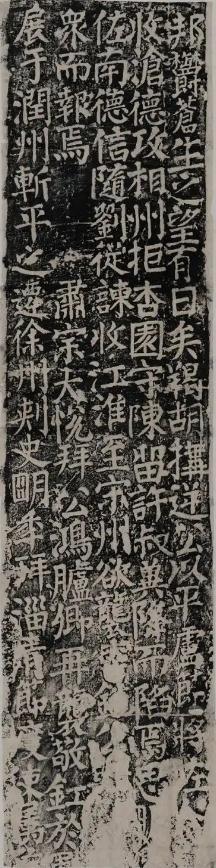 邦欝蒼生之望有日矣羯胡搆逆公以平盧節將佐
收滄德攻相州拒杏園守陳留許叔冀降而陷焉思明
佐南德信隨劉從諫收江淮至宋州欲襲李銑
衆而報焉肅宗大悅拜公鴻臚卿再襲敬釭於
展于潤州斬平之遷徐州刺史明年拜淄青節度使